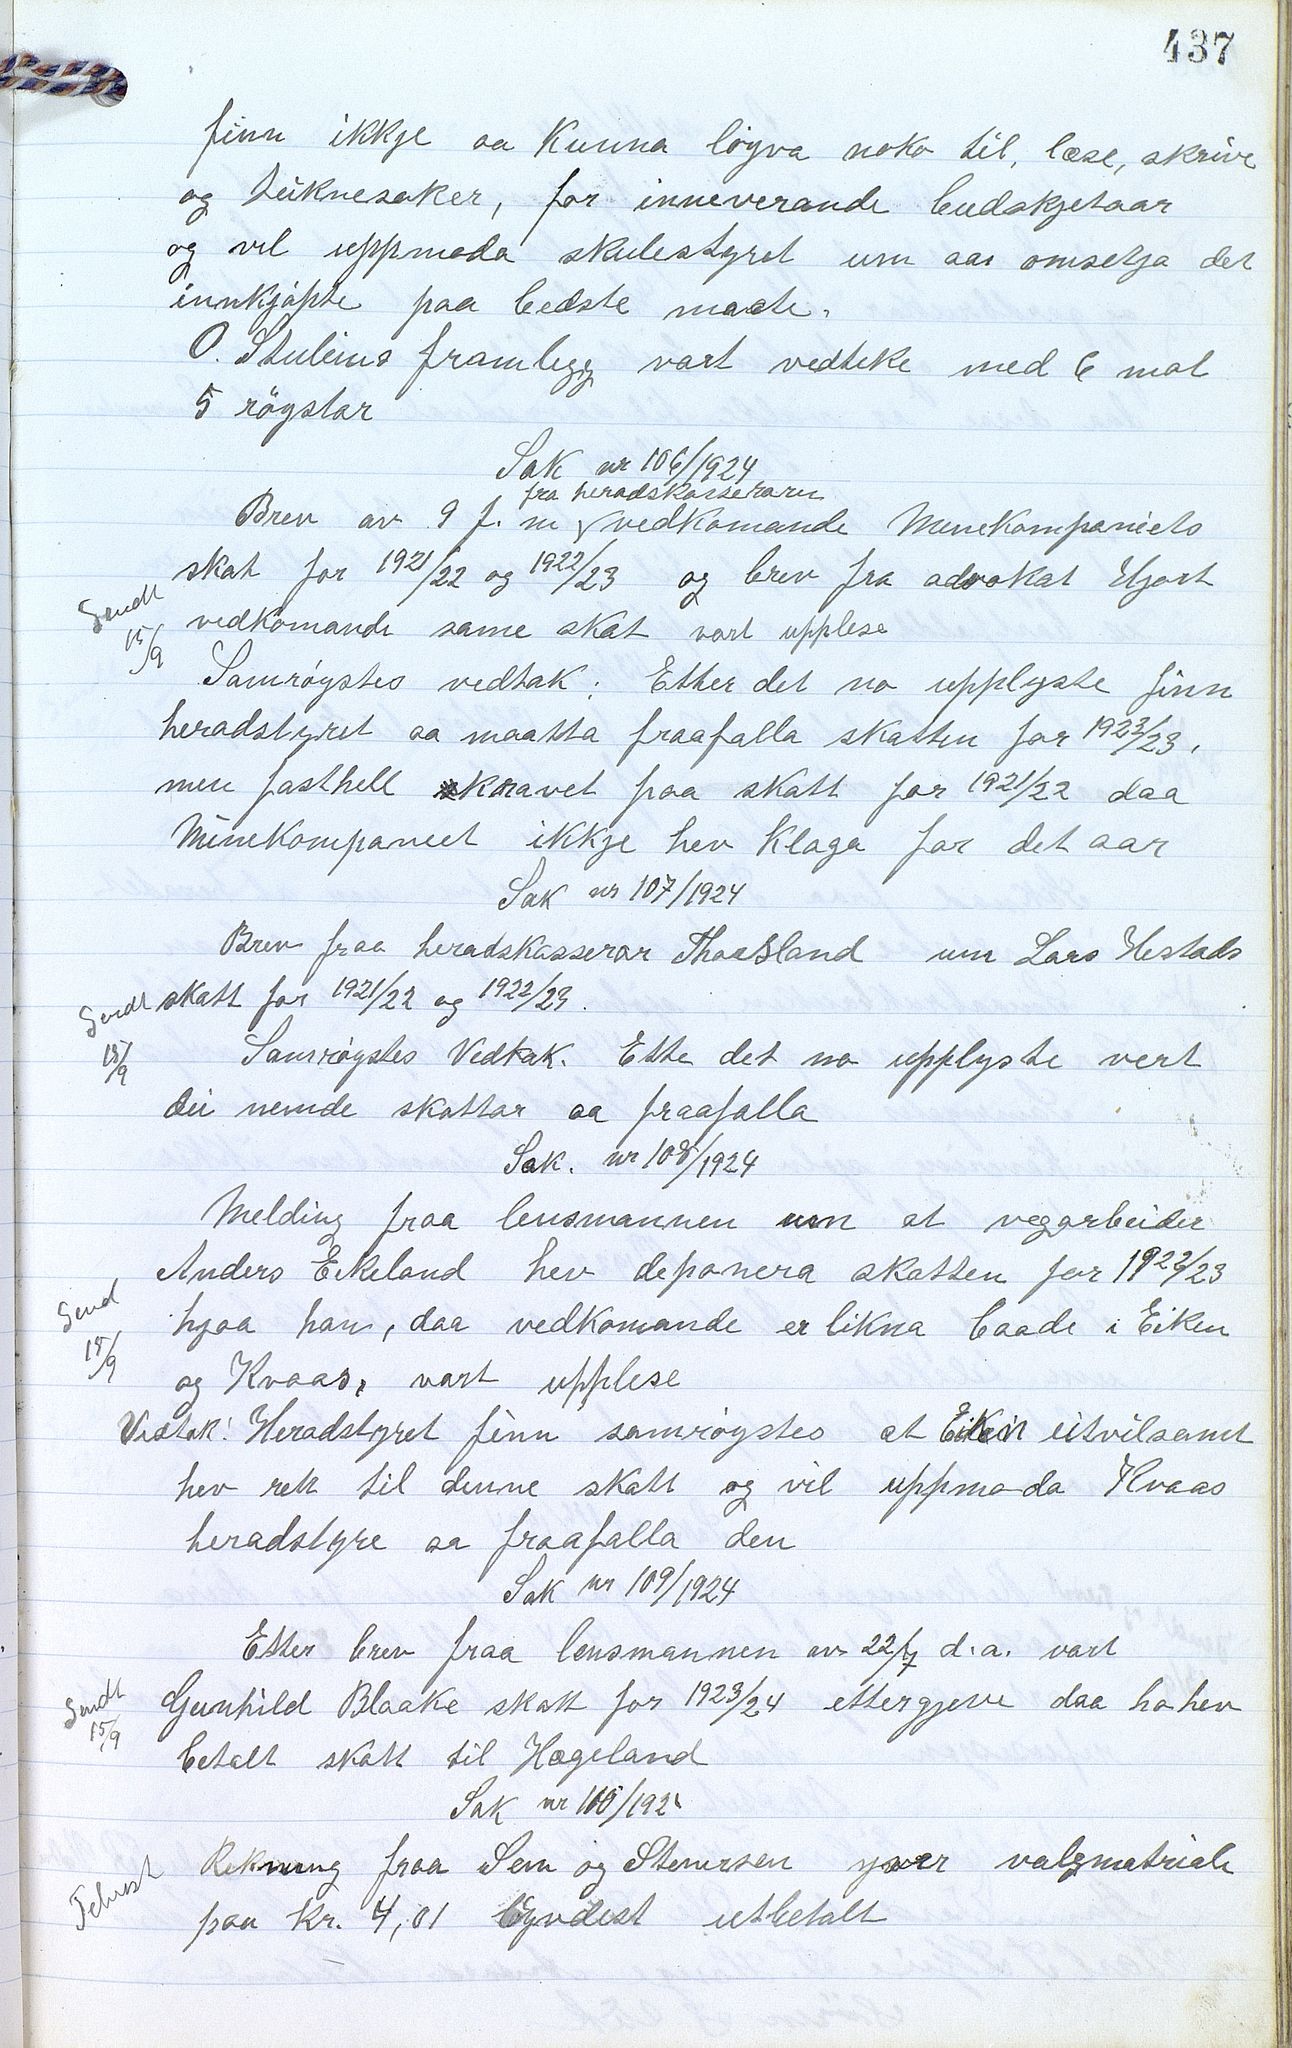 437
finn ikkje aa kunna løyva noko til, læse, skrive
og teiknesaker, for inneverande budskjetaar
og vil uppmoda skulestyret um aa omsetja det
innkjøpte paa bedste maate.
O. Stuleins framlegg vart vedteke med 6 mot
5 røystar
Sak nr 106/1924
fra heradskasseraren
Brev av 9 f. m vedkomande Minekompaniets
skat for 1921/22 og 1922/23 og brev fra advokat Hjort
Sendt
15/9
vedkomande same skat vart upplese
Samrøystes vedtak: Etter det no upplyste finn
heradstyret aa maatta fraafalla skatten for 1922/23,
men fasthell kravet paa skatt for 1921/22 daa
Minekompaniet ikkje hev klaga for det aar
Sak nr 107/1924
Brev fraa heradskasserar Thaasland um Lars Hestads
Sendt
15/9
skatt for 1921/22 og 1922/23.
Samrøystes Vedtak. Ette det no upplyste vert
dei nemde skattar aa fraafalla
Sak. nr 108/1924
Melding fraa lensmannen um at vegarbeider
Anders Eikeland hev deponera skatten for 1922/23
Send
15/9
hjaa han, daa vedkomande er likna baade i Eiken
og Kvaas, vart upplese
Vedtak: Heradstyret finn samrøystes at Eiken utvilsamt
hev rett til denne skatt og vil uppmoda Kvaas
heradstyre aa fraafalla den
Sak nr 109/1924
Etter brev fraa lensmannen av 22/7 d.a. vart
Sendt
15/9
Gunhild Blaake skatt for 1923/24 ettergjeve daa ho hev
betalt skatt til Hægeland
Sak nr 110/192
Rekning fraa Sem og Stenersen yver valgmatriale
paa kr. 4,01 utbetalt